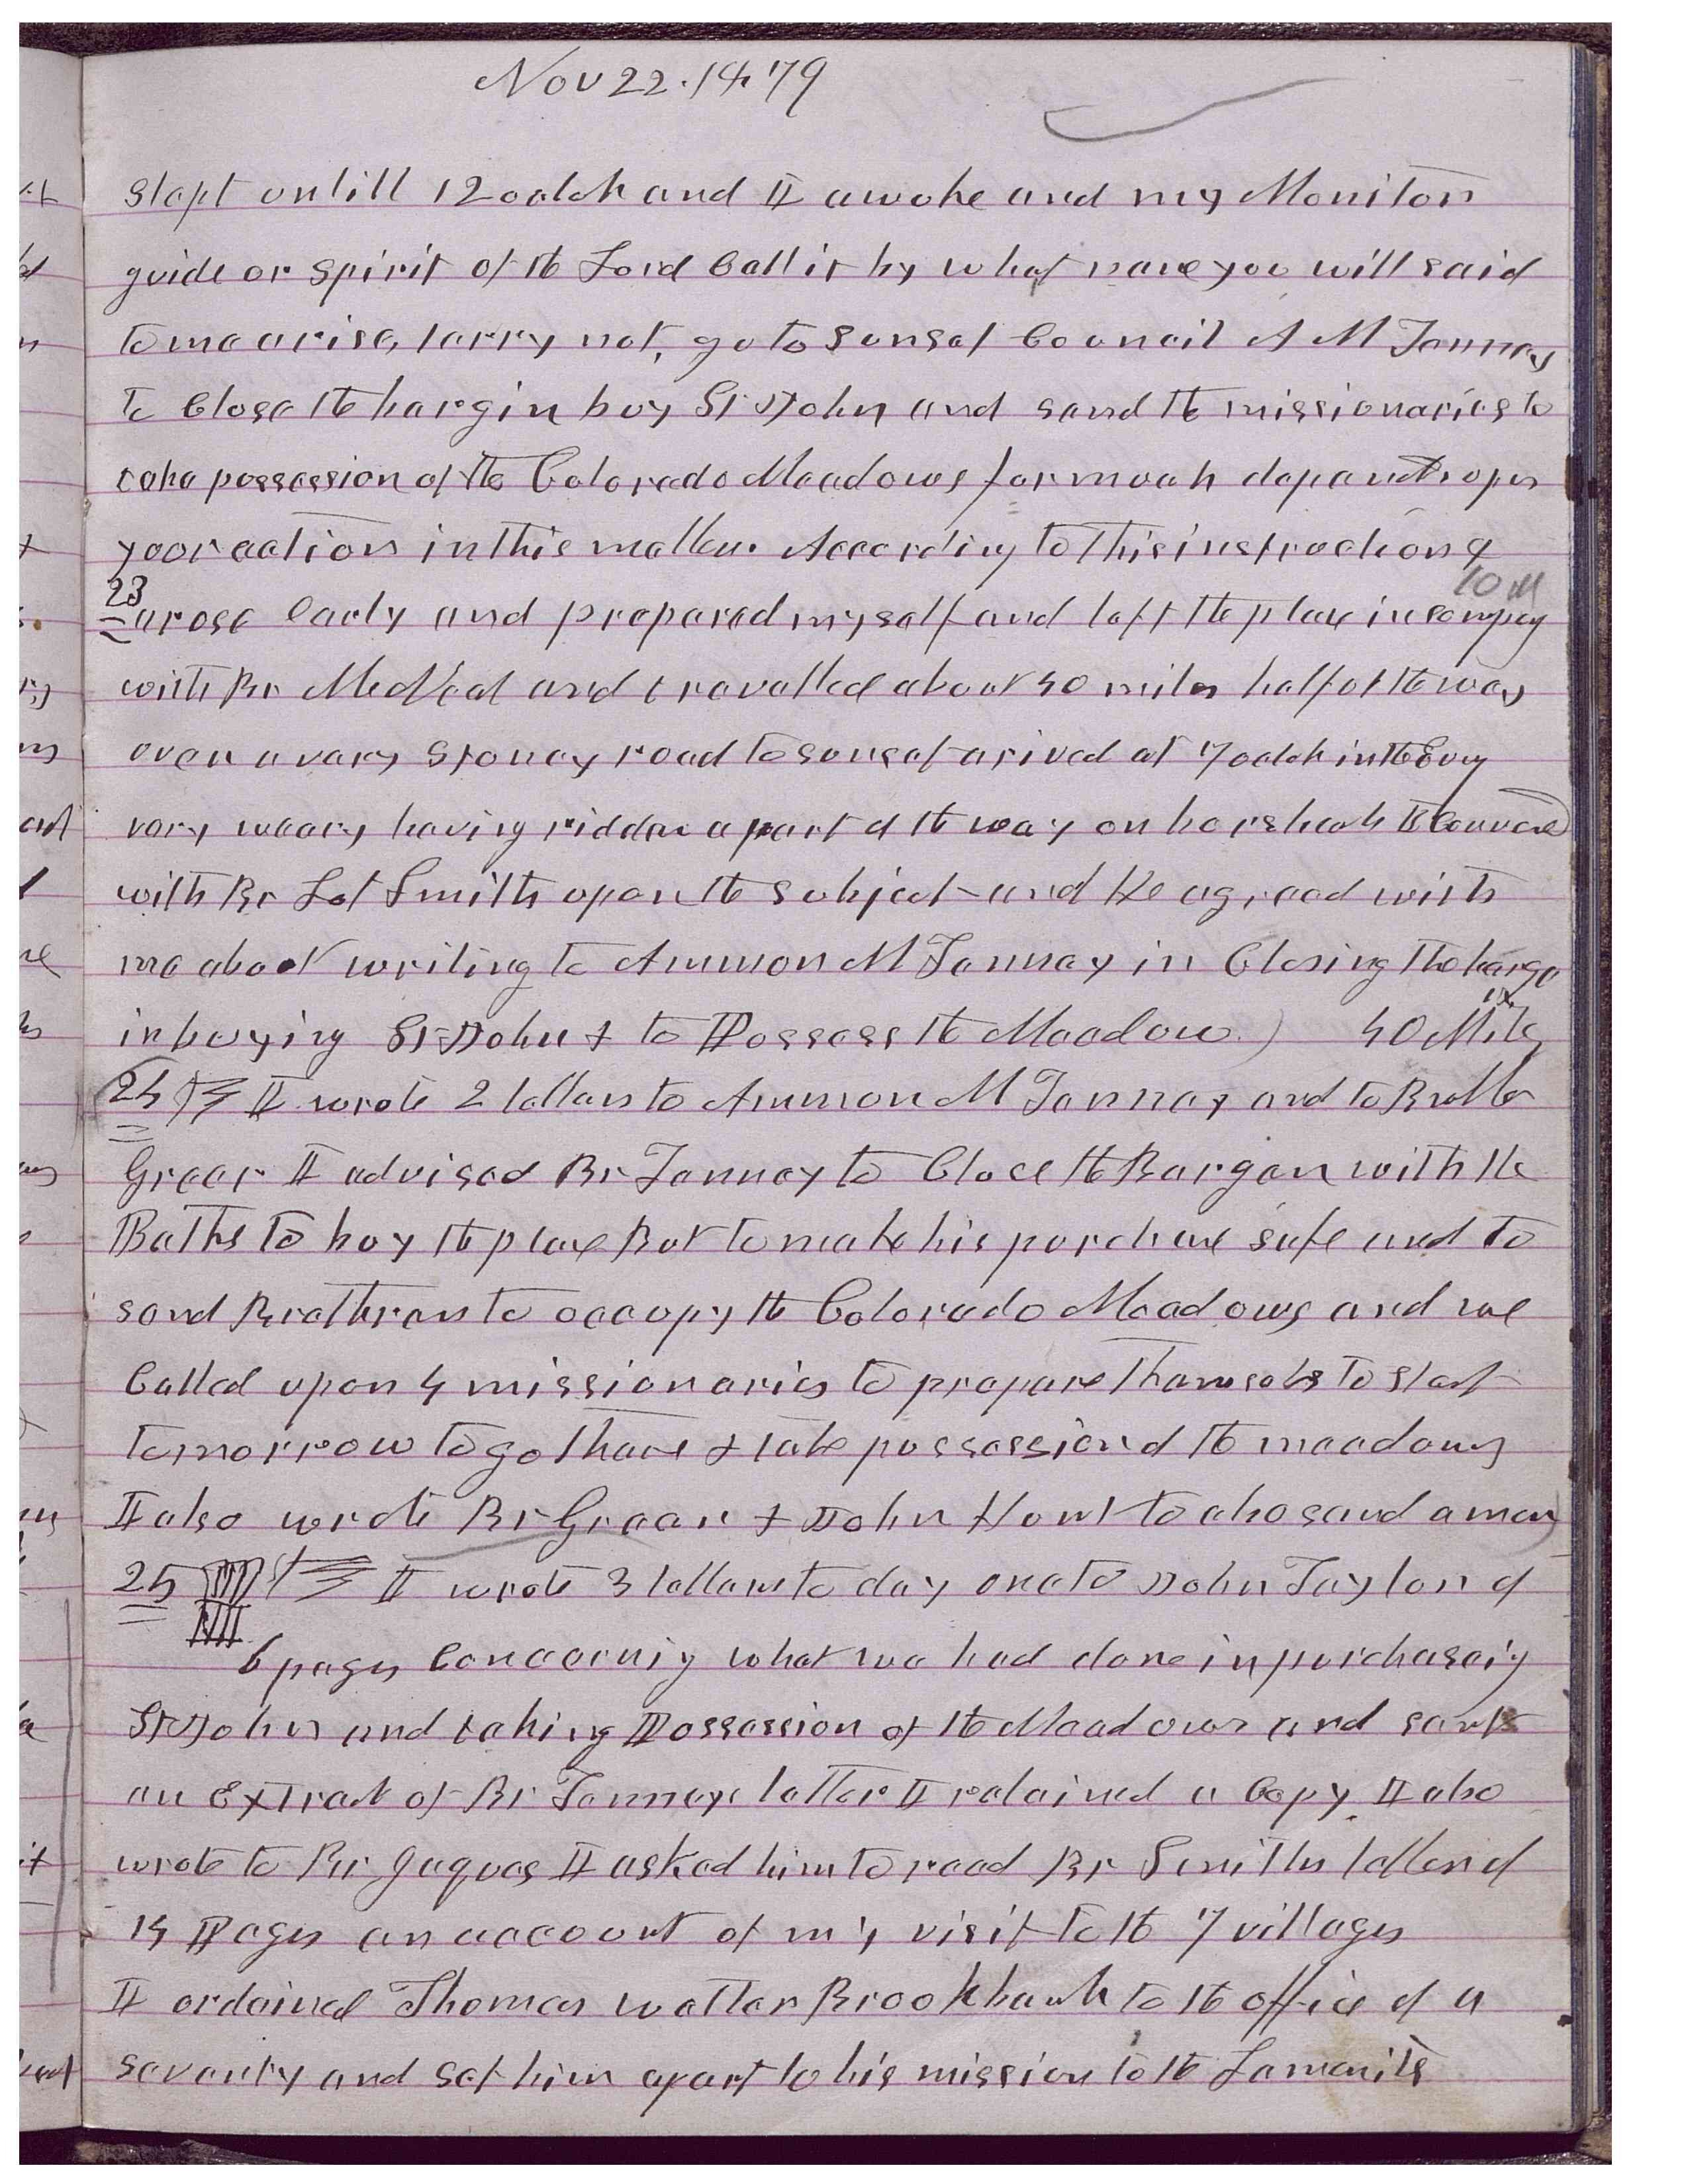 Nov 22. 1879
slept untill 12 oclok and I awoke and my Moniton
guide or spirit of the Lord Call it by what name you will said
to me arise, tarry not, go to Sunset Council A M Tenney
to Close the bargin buy St John and send the missionaries to
take possession of the Colorado Meadows for much depends upon
your action in this matter. According to this instruction I
10 M
23 arose Early and prepared myself and left the place in compay
with Br McNeal and travelled about 40 miles half of the way
over a very Stoney road to sunset arived at 7 oclok in the Evng
very weary having ridden a part of the way on horseback I Counciled
with Br Lot Smith upon the subject and He agreed with
me about writing to Ammon M Tenney in Closing the barga
in buying St John & to Possess the Meadow) 40 Mils
24 I wrote 2 letters to Ammon M Tenney and to Brother
Greer I advised Br Tenney to Close the Bargan with the
Baths to buy the place But to make his purchase safe and to
send Brethren to occupy the Colorado Meadows and we
Called upon 4 missionaries to prepare themselves to start
tomorrow to go there & take possession of the meadows
I also wrote Br Greer & John Hunt to also send a man)
25 I wrote 3 letters to day one to John Taylor of
6 pages Concerning what we had done in purchaseing
St John and taking Possession of the Meadows and sent
an Extract of Br Tenneys letter I retained a Copy I also
wrote to Br Jaques I asked him to read Br Smiths letter of
14 Pages an account of my visit to the 7 villages
I ordained Thomas Walter Brookbank to the office of a
seventy and set him apart to his mission to the Lamanits